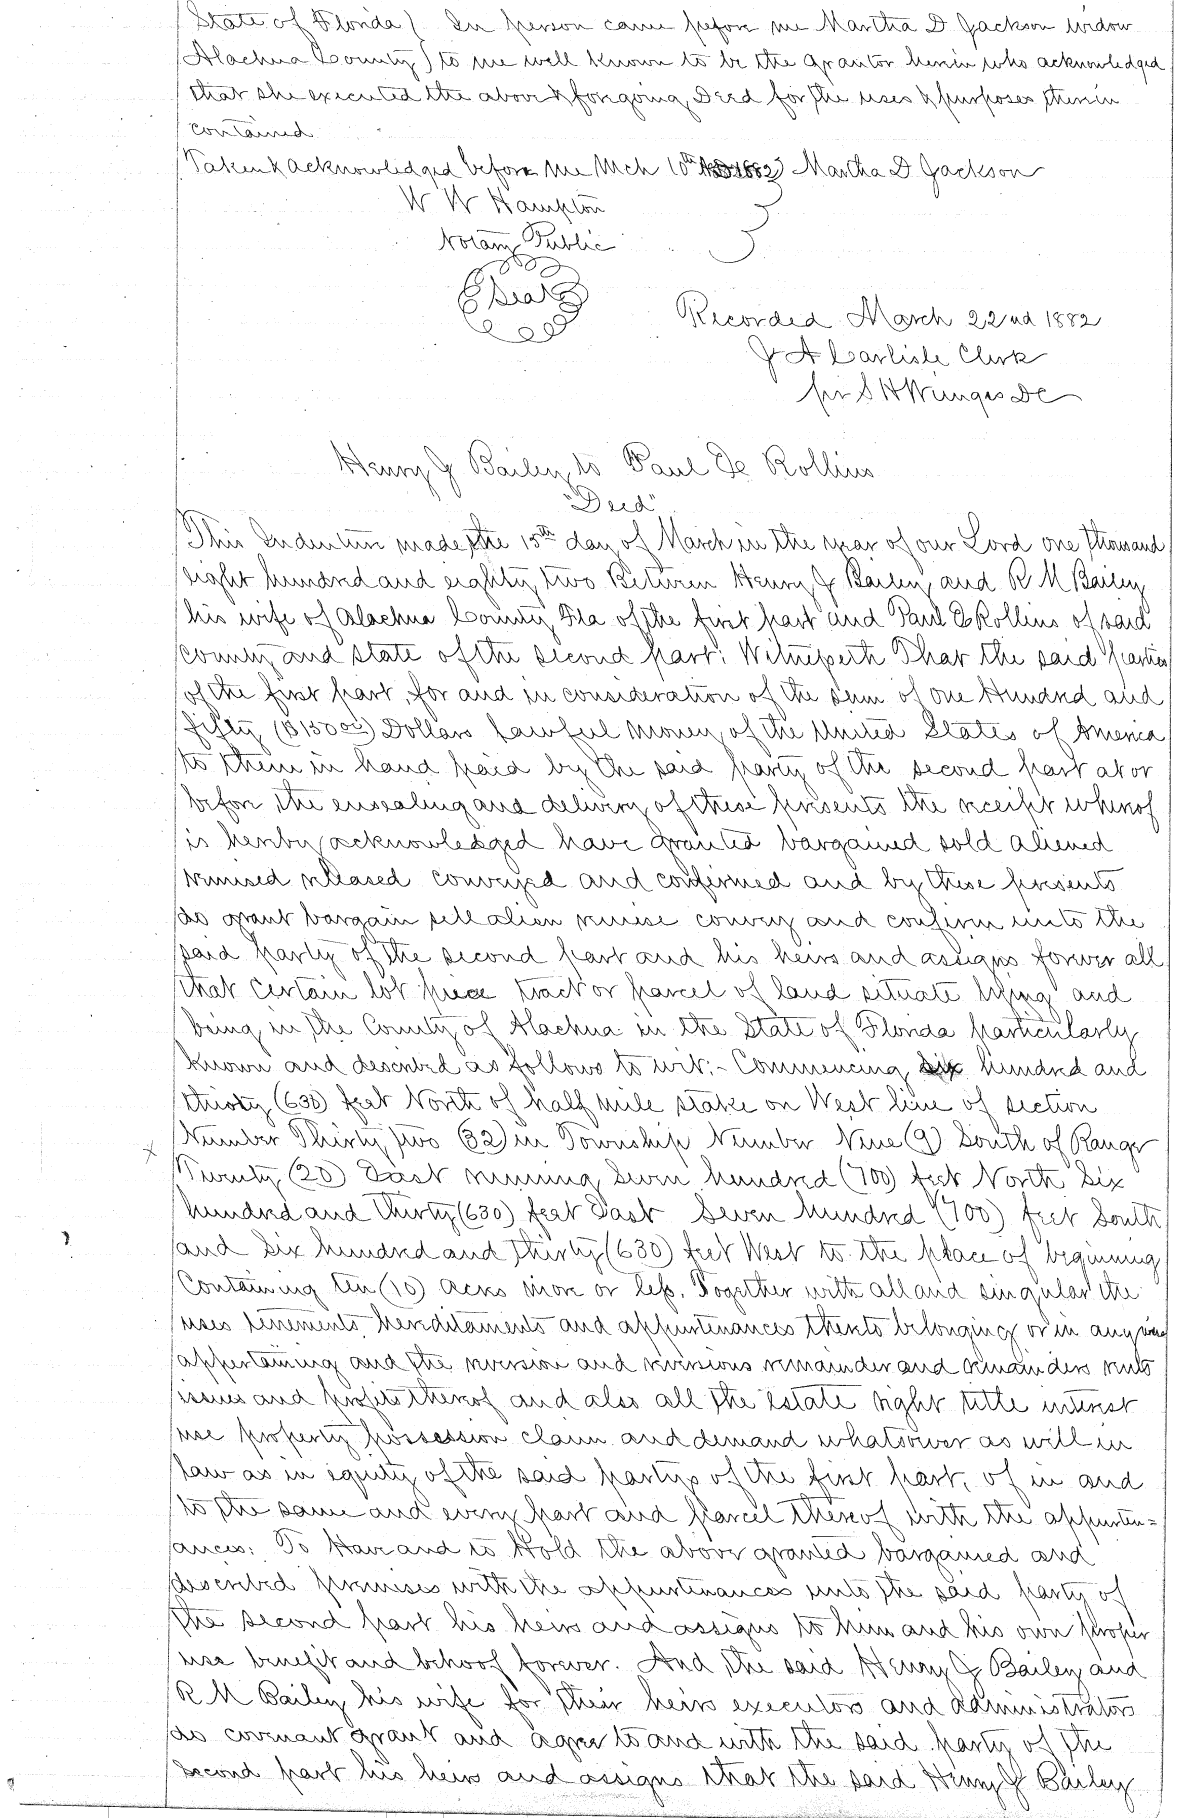 State of Florida } In person came before me Martha D Jackson widow
Alachua County } to me well known to be the grantor herein who acknowledged
that she executed the above & forgoing Deed for the uses & purposes therein
contained
Taken & acknowledged before me Mch 10th AD 1882 } Martha D Jackson
W W Hampton
Notary Public
Seal
Recorded March 22nd 1882
J A Carlisle Clerk
per S H Wienges DC
Henry J Bailey to Paul De Rollins
"Deed"
This Indenture made the 15th day of March in the year of our Lord one thousand
eight hundred and eighty two Between Henry J Bailey and R M Bailey
his wife of Alachua County Fla of the first part and Paul E Rollins of said
County and state of the second part: Witnesseth That the said parties
of the first part, for and in consideration of the sum of one Hundred and
fifty ($150 00) Dollars lawful money of the United States of America
to them in hand paid by the said party of the second part at or
before the ensealing and delivery of these presents the receipt whereof
is hereby acknowledged have granted bargained sold aliened
remised released conveyed and confirmed and by these presents
do grant bargain sell alien remise convey and confirm unto the
said party of the second part and his heirs and assigns forever all
that certain lot piece tract or parcel of land situate lying and
being in the County of Alachua in the State of Florida particularly
known and described as follows to wit:- Commencing six hundred and
thirty (630) feet North of half mile stake on West line of section
Number Thirty two (32) in Township Number Nine (9) South of Range
x
Twenty (20) East running Seven hundred (700) feet North Six
hundred and thirty (630) feet East Seven hundred (700) feet South
and Six hundred and thirty (630) feet West to the place of beginning
Containing ten (10) acres more or less. Together with all and singular the
uses tenements hereditaments and appurtenances thereto belonging or in any wise
appertaining and the reversion and reversions remainder and remainders rents
issues and profits thereof and also all the estate right title interest
use property possession claim and demand whatsoever as well in
law as in equity of the said partys of the first part, of in and
to the same and every part and parcel thereof with the appurten=
ances: To Have and to Hold the above granted bargained and
described premises with the appurtenances unto the said party of
the second part his heirs and assigns to him and his own proper
use benefit and behoof forever. And the said Henry J Bailey and
R M Bailey his wife for their heirs executors and administrators
do covenant grant and agree to and with the said party of the
second part his heirs and assigns that the said Henry J Bailey